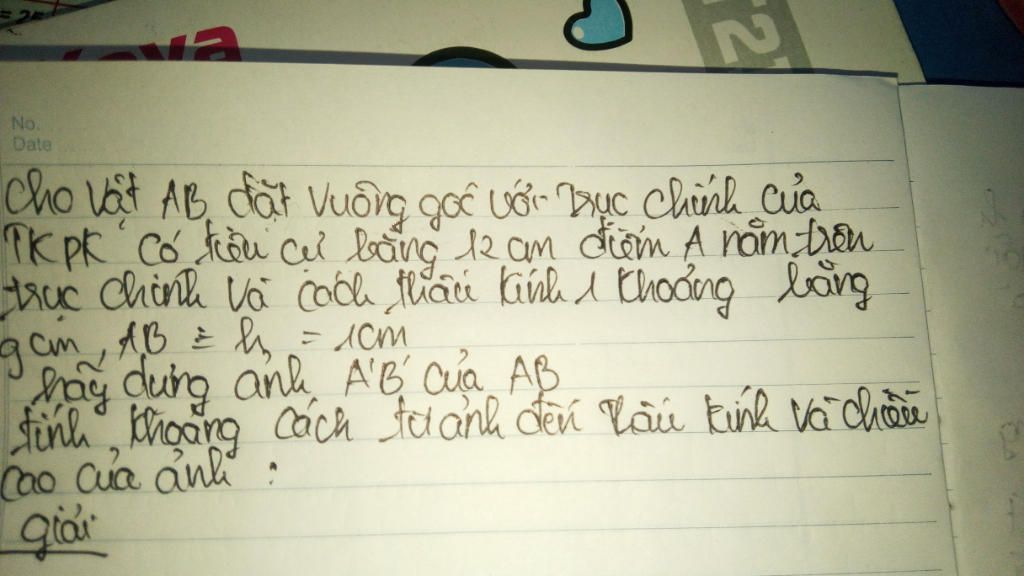 No.
Date
Cho vật AB đặt vuông góc với trục chính của
TKPK có tiêu cự bằng 12 cm điểm A nằm trên
trục chính và cách thấu kính 1 khoảng bằng
9 cm, AB = h = 1cm
hãy dựng ảnh A'B' của AB
tính khoảng cách từ ảnh đến thấu kính và chiều
cao của ảnh :
giải